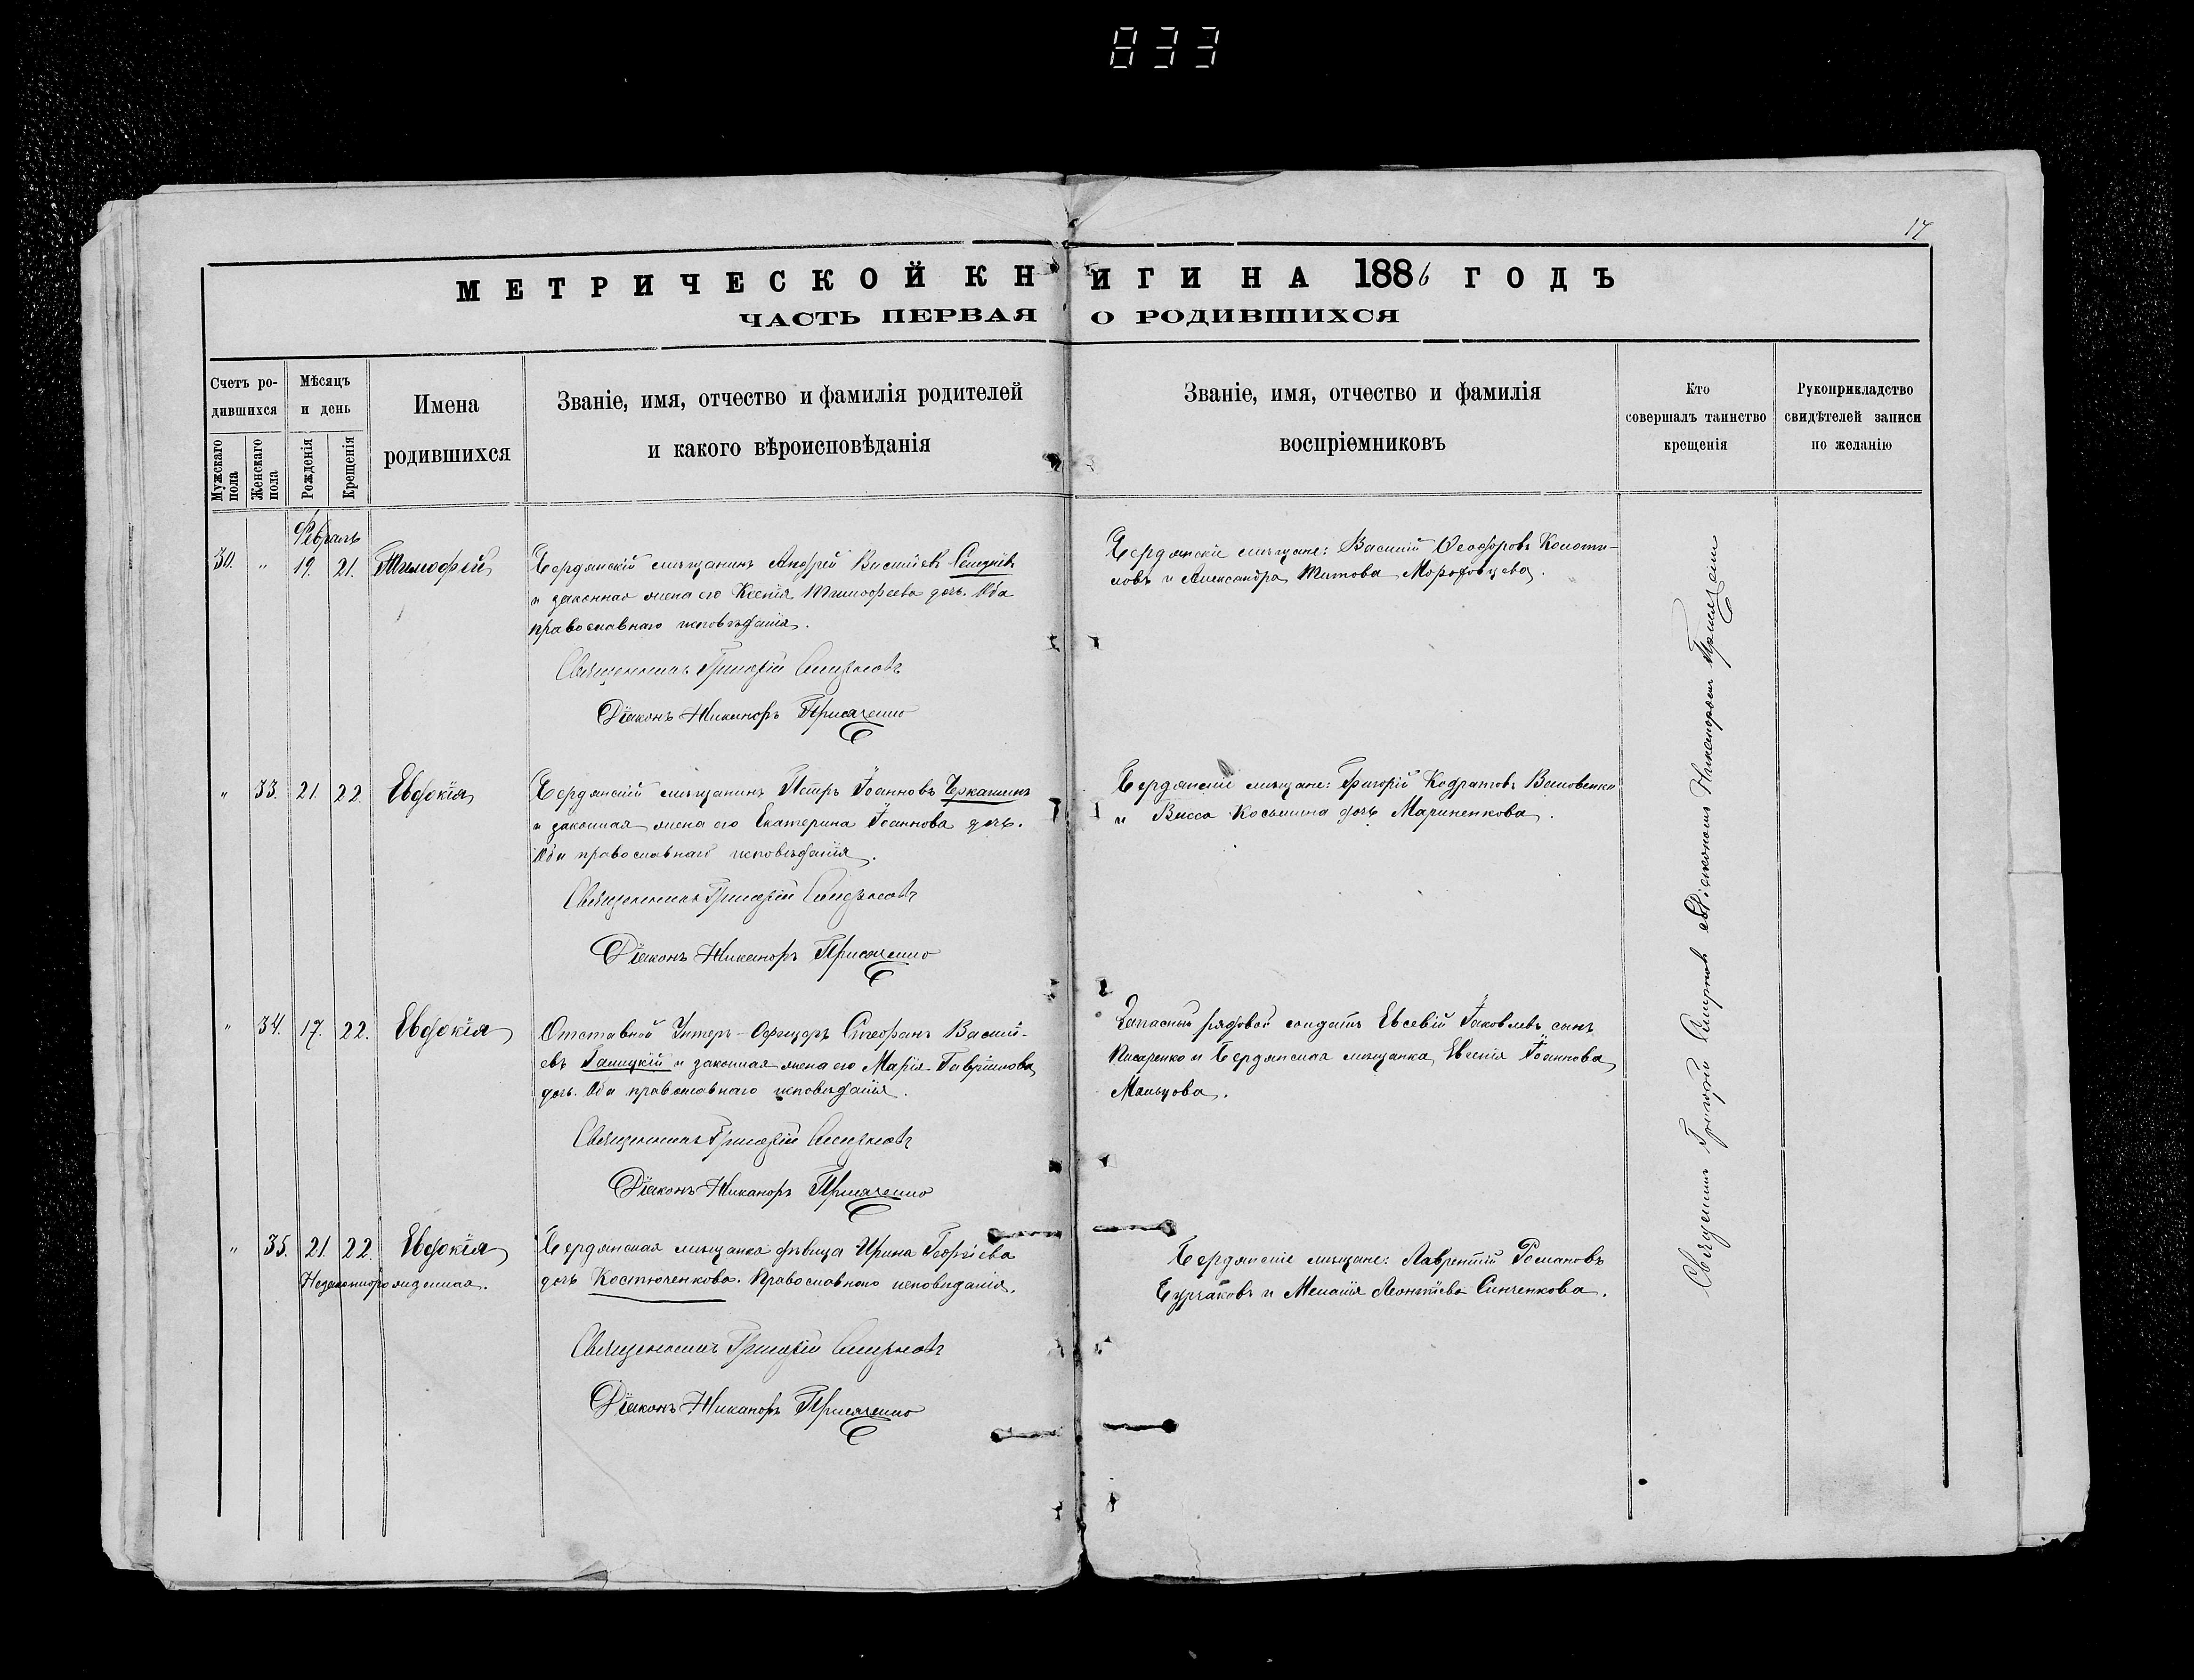 833
17
МЕТРИЧЕСКОЙ КНИГИ НА 1886 ГОДЪ
ЧАСТЬ ПЕРВАЯ О РОДИВШИХСЯ
Счетъ ро-
дившихся
Мужскаго
пола
Женскаго
пола
Мѣсяцъ
и день
Рожденія
Крещенія
Имена
родившихся
Званіе, имя, отчество и фамилія родителей
и какого вѣроисповѣданія
Званіе, имя, отчество и фамилія
воспріемниковъ
Кто
совершалъ таинство
крещенія
Рукоприкладство
свидѣтелей записи
по желанію
Февраль
30. " 19. 21. Тимофей
Бердянскій мѣщанинъ Андрей Васильевъ
и законная жена его Ксенія Тимофеева дочь. Оба
православнаго исповѣданія.
Священникъ Григорій Смирновъ
Діаконъ Никаноръ
Бердянскіе мѣщане: Василій Ѳеодоровъ Колоти-
ловъ и Александра Титова Морозовцева.
" 33. 21. 22. Евдокія
Бердянскій мѣщанинъ Петръ Іоанновъ Черкашинъ
и законная жена его Екатерина Іоаннова дочь.
Оба православнаго исповѣданія.
Священникъ Григорій Смирновъ
Діаконъ Никаноръ
Бердянскіе мѣщане: Григорій Кодратовъ
и Васса Косьмина дочь Мариненкова.
" 34. 17. 22. Евдокія
Отставной Унтеръ-Офицеръ Стефанъ Василь-
евъ Галицкій и законная жена его Марія Гавріилова
дочь. Оба православнаго исповѣданія.
Священникъ Григорій Смирновъ
Діаконъ Никаноръ
Запасный рядовой солдатъ Евсевій Іаковлевъ сынъ
Писаренко и Бердянская мѣщанка Евгенія Іоаннова
Мальцова.
" 35. 21. 22. Евдокія
Незаконнорожденная.
Бердянская мѣщанка дѣвица Ирина Георгіева
дочь Костюченкова. Православнаго исповѣданія.
Священникъ Григорій Смирновъ
Діаконъ Никаноръ
Бердянскіе мѣщане: Лаврентій Романовъ
Бурчаковъ и Меланія Леонтіева Синченкова.
Священникъ Григорій Смирновъ съ діакономъ Никаноромъ